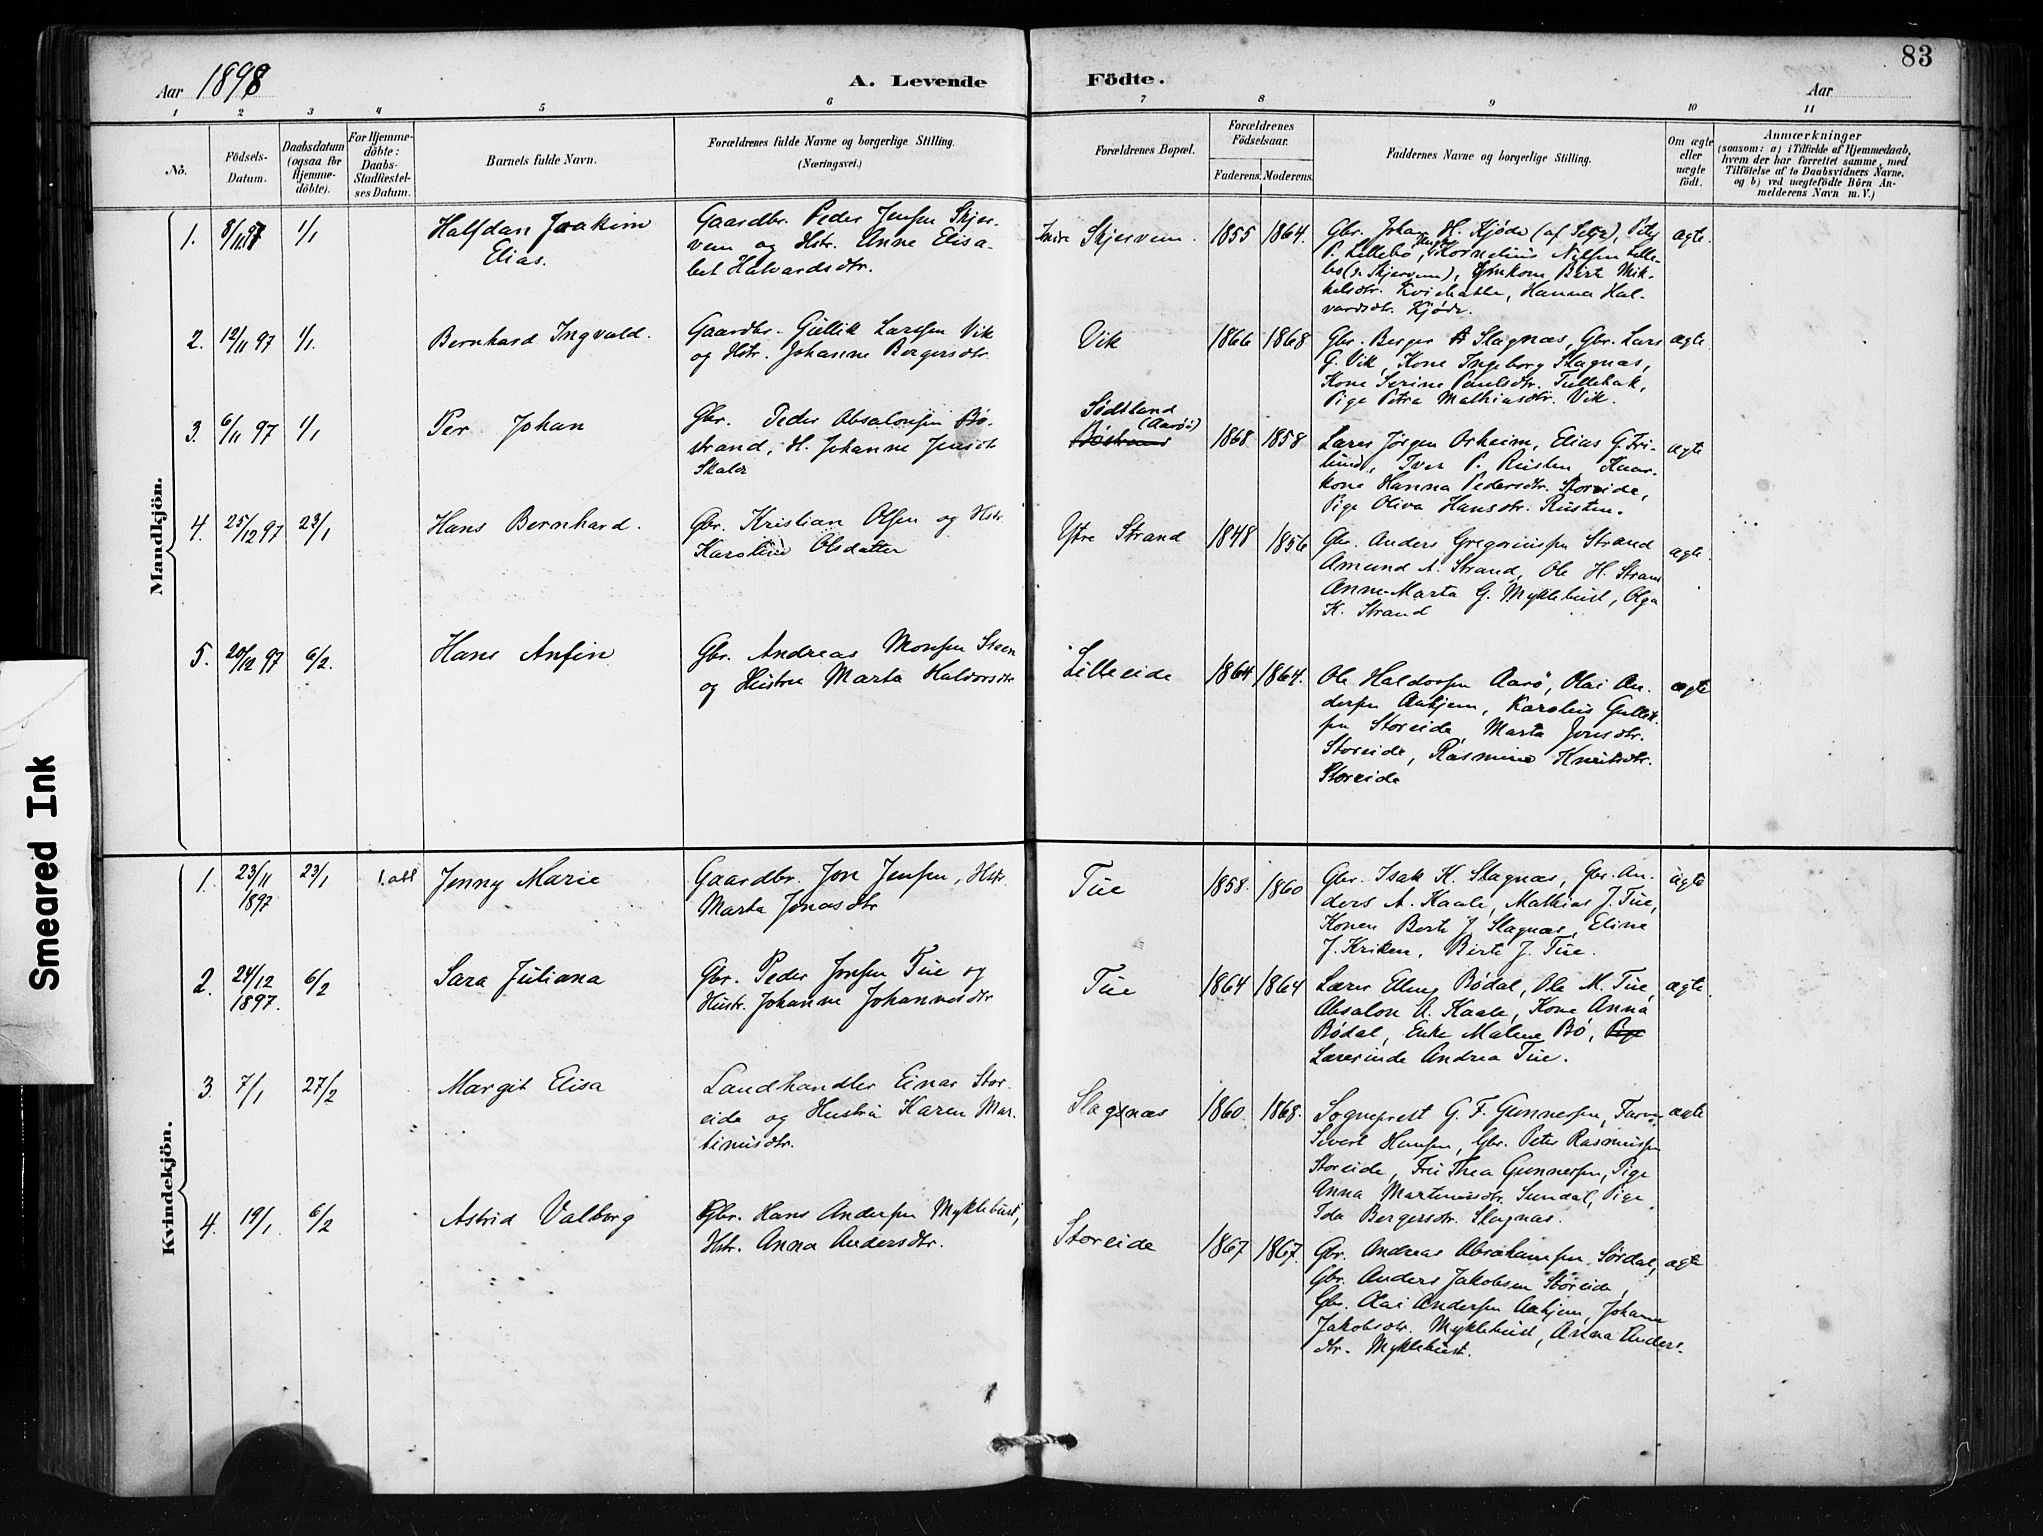 83
Aar 1898
A. Levende Födte.
Aar
1 2 3 4 5 6 7 8 9 10 11
No.
Födsels-
Datum.
Daabsdatum
(ogsaa for
Hjemme-
döbte).
For Hjemme-
döbte:
Daabs-
Stadfæstel-
ses Datum.
Barnets fulde Navn.
Forældrenes fulde Navne og borgerlige Stilling.
(Næringsvei.)
Forældrenes Bopæl.
Forældrenes
Födselsaar.
Faderens. Moderens.
Faddernes Navne og borgerlige Stilling.
Om ægte
eller
uægte
födt.
Anmærkninger
(saasom: a) i Tilfælde af Hjemmedaab,
hvem der har forrettet samme, med
Tilföielse af to Daabsvidners Navne,
og b) ved uægtefödte Börn An-
melderens Navn m. V.)
Mandkjön.
1. 8/11 97 1/1
Halfdan Joakim
Elias.
Gaardbr. Peder Jensen Skjer-
vem og Hstr. Anne Elisa-
bet Halvardsdtr.
Indre Skjervem. 1855 1864.
Gbr. Johan H. Kjøde (af Selje), Peter
P. Lillebø, Ungk. Kornelius Nilsen Lille-
bø (v. Skjervem), Gmkone Berte Mik-
kelsdtr. Hanna Hal-
vardsdtr. Kjøde.
ægte.
2. 12/11 97 1/1.
Bernhard Ingvald.
Gaardbr. Gullik Larssen Vik
og Hstr. Johanne Bergersdtr.
Vik 1866 1868
Gbr. Berger A Slagnæs, Gbr. Lars
G. Vik, Kone Ingeborg Slagnæs,
Kone Serine Paulsdtr. Tullekak,
Pige Petra Mathiasdtr. Vik.
ægte.
3. 6/11 97 1/1
Per Johan
Gbr. Peder Absalonsen Bø-
strand, H. Johanne Jensdtr
Skaler
Sødtland
(Aarø)
Bøstrand 1868. 1858
Lærer Jørgen Orheim, Elias G. Fri-
lund, Iver P. Rusten, Kaar-
kone Hanna Pedersdtr. Storeide,
Pige Oliva Hansdtr. Rusten.
ægte
4. 25/12 97 23/1
Hans Bernhard.
Gbr. Kristian Olsen og Hstr.
Karoline Olsdatter
Ytre Strand 1848 1856
Gbr. Anders Gregoriussen Strand
Amund A. Strand, Ole H. Strand
Anne-Marta G. Myklebust, Olga
K. Strand
ægte.
5. 20/12 97 6/2.
Hans Anfin
Gbr. Andreas Monsen Steen
og Hustru Marta Haldorsdtr
Lilleeide 1864 1864.
Ole Haldorsen Aarø, Olai An-
dersen Aahjem, Karolus Gullik-
sen Storeide, Marta Jonsdtr.
Storeide, Rasmine Knutsdtr.
Storeide
ægte
Kvindekjön.
1. 23/11 1897 23/1 1. abl
Jenny Marie
Gaardbr. Jon Jensen, Hstr.
Marta Jonasdtr
Tue 1858. 1860
Gbr. Isak K. Slagnæs, Gbr. An-
ders A. Kaale, Mathias J. Tue,
Konen Berte J Slagnæs, Eline
J. Kriken, Birte J. Tue.
ægte
2. 24/12 1897. 6/2
Sara Juliana
Gbr. Peder Jonsen Tue og
Hustr. Johanne Johannesdtr
Tue 1864 1864
Lærer Elling Bødal, Ole M. Tue,
Absalon A. Kaale, Kone Anna
Bødal, Enke Malene Bø, Pige
Lærerinde Andrea Tue.
ægte.
3. 7/1 27/2
Margit Elisa
Landhandler Einar Stor-
eide og Hustru Karen Mar-
tinusdtr.
Slagnæs 1860. 1868.
Sogneprest G. F. Gunnersen,
Sivert Hansen, Gbr. Peter Rasmussen
Storeide, Fru Thea Gunnersen, Pige
Anna Martinusdtr. Sundal, Pige
Ida Bergersdtr. Slagnæs.
ægte
4. 19/1 6/2
Astrid Valborg
Gbr. Hans Andersen Myklebust,
Hstr. Anna Andersdtr.
Storeide 1867 1867.
Gbr. Andreas Abrahamsen Sørdal,
Gbr. Anders Jakobsen Storeide,
Gbr. Olai Andersen Aahjem, Johanne
Jakobsdtr. Myklebust, Anna Anders-
dtr. Myklebust.
ægte
Smeared Ink